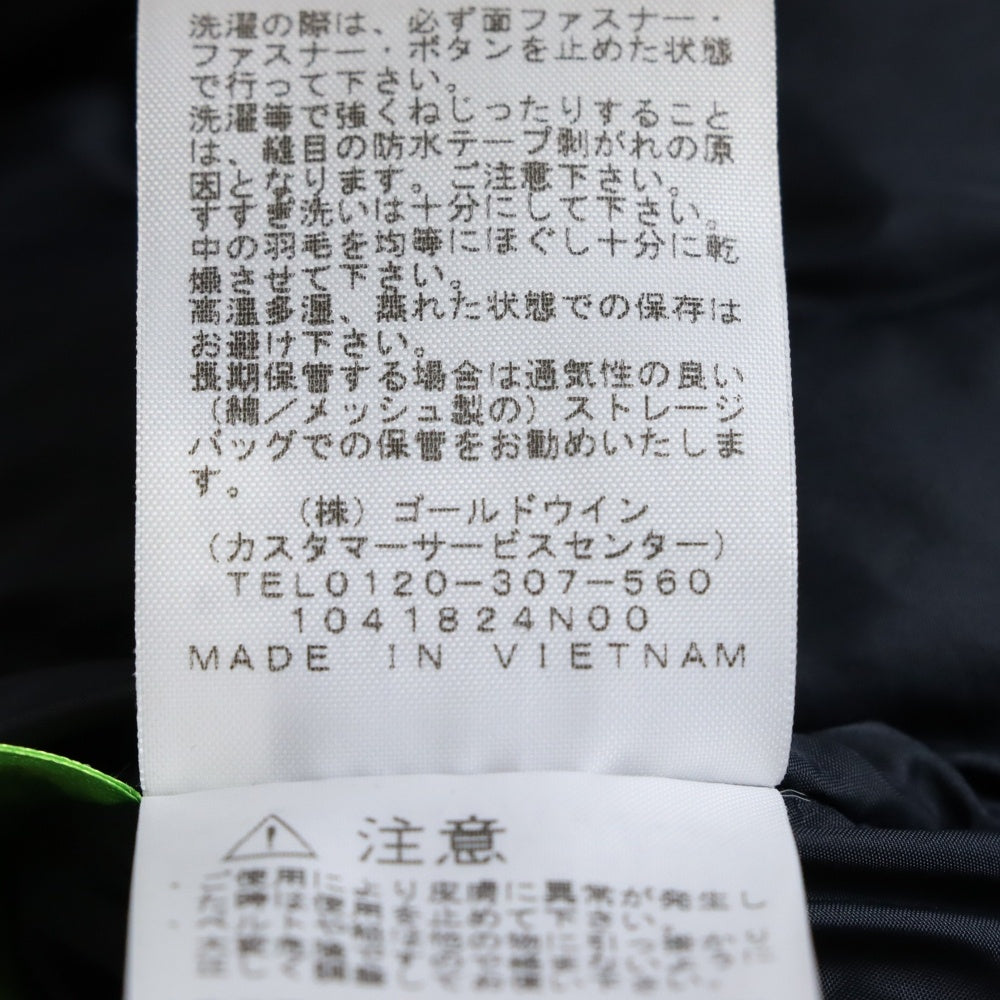 洗濯の際は、必ず面ファスナー・
ファスナー・ボタンを止めた状態
で行って下さい。
洗濯等で強くねじったりすること
は、縫目の防水テープ剥がれの原
因となります。ご注意下さい。
すすぎ洗いは十分にして下さい。
中の羽毛を均等にほぐし十分に乾
燥させて下さい。
高温多湿、蒸れた状態での保存は
お避け下さい。
長期保管する場合は通気性の良い
（綿／メッシュ製の）ストレージ
バッグでの保管をお勧めいたしま
す。
（株）ゴールドウイン
（カスタマーサービスセンター）
TEL0120-307-560
1041824N00
MADE IN VIETNAM
注意
ご使用により皮膚に異常が発生し